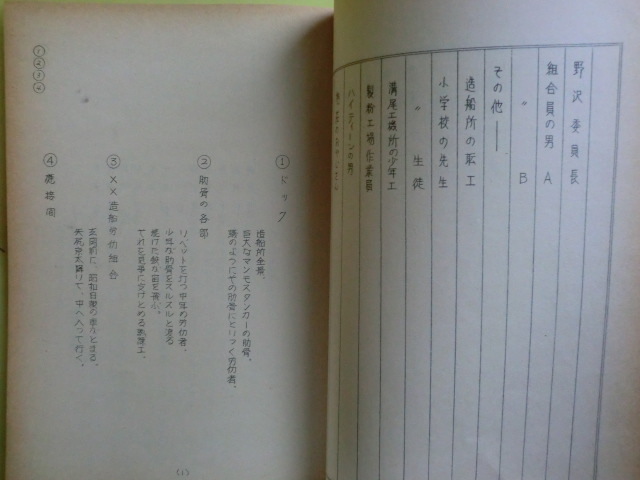 野沢委員長
組合員の男 A
〃 B
その他――
造船所の職工
小学校の先生
〃 生徒
溝尾工機所の少年工
製粉工場作業員
ハイティーンの男
①②③④
① ドック
造船所全景。
巨大なマンモスタンカーの肋骨。
蟻のようにその肋骨にとりつく労仂者。
② 肋骨の各部
リベットを打つ中年の労仂者。
少年が肋骨をスルスルと渡る
焼けた鋲が宙を飛ぶ。
それを見事に受けとめる熟練工。
③ ××造船労仂組合
玄関前に、昭和自動の車がとまる。
矢部京太郎降りて、中へ入って行く。
④
(1)